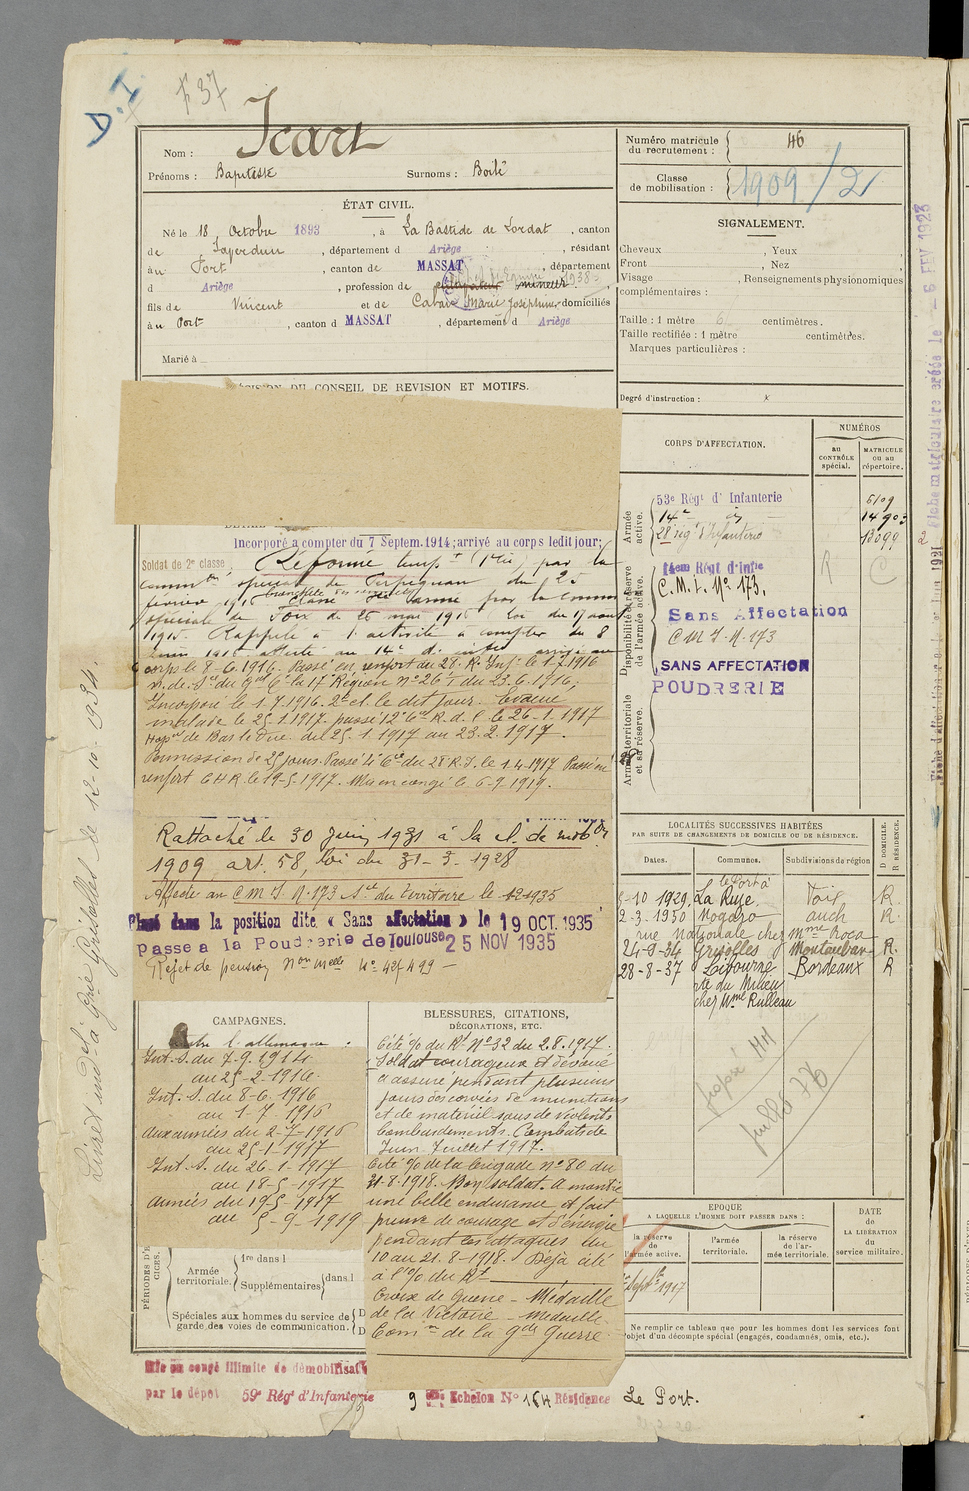 D.I
F 37
Nom : Icart
Prénoms : Baptiste Surnoms : Boilé
Numéro matricule du recrutement : 46
Classe de mobilisation : 1909/2
ÉTAT CIVIL.
Né le 18 Octobre 1893, à La Bastide de Lordat, canton
de Saverdun, département d Ariège, résidant
à u Port, canton de MASSAT, département
d Ariège, profession de mineur 1938
fils de Vincent et de Marie Joséphine domiciliés
à u Port, canton d MASSAT, département d Ariège
Marié à
SIGNALEMENT.
Cheveux , Yeux ,
Front , Nez ,
Visage , Renseignements physionomiques
complémentaires :
Taille : 1 mètre 6 centimètres.
Taille rectifiée : 1 mètre centimètres.
Marques particulières :
Degré d'instruction : x
DU CONSEIL DE REVISION ET MOTIFS.
Incorporé à compter du 7 Septem. 1914; arrivé au corps ledit jour;
Soldat de 2e classe. Réformé temp.t par la
spéciale de Perpignan du 25
février 1915 Classé armé par la Comm
spéciale de Foix du 26 mai 1916 loi du 17 aout
1915. Rappelé à l'activité à compter du 8
Juin 1916 affecté au 14e d'infrie arrivé au
corps le 8-6.1916. Passé en renfort du 28e R. Inf. le 1-7.1916
n. de Sce du Gal Ct la 17e Région No 26 du 23.6.1916,
Incorporé le 1.7.1916. 2e cl. le dit jour. Evacué
malade le 25.1.1917. passé 12e Cie R. d. C le 26-1.1917
Hopal de Bar le Duc. del 25.1.1917 au 23.2.1917.
Permission de 20 jours. Passé 4e Cie du 28e R.I. le 1.4.1917 Passé en
renfort C H R le 19-5-1917. Mis en congé le 6-9.1919.
Rattaché le 30 Juin 1931 à la cl. de mob.on
1909, art. 58, loi du 31-3-1928
Affecté au C M I N.173 Sce du Territoire le
Placé dans la position dite « Sans affectation » le 19 OCT. 1935
Passé a la Poudrerie de Toulouse 25 NOV 1935
Rejet de pension Non melle No 424 499 —
CORPS D'AFFECTATION.
NUMÉROS
au CONTRÔLE spécial.
MATRICULE ou au répertoire.
Armée active.
53e Régt d'Infanterie 6109
14e — d° — 14903
28 régt d'Infanterie 13099
Disponibilité et réserve de l'armée active.
14em Régt d'Infie
C.M.I. No 173.
Sans Affectation
C M I N-173
SANS AFFECTATION
POUDRERIE
R C
Armée territoriale et sa réserve.
LOCALITÉS SUCCESSIVES HABITÉES
PAR SUITE DE CHANGEMENTS DE DOMICILE OU DE RÉSIDENCE.
Dates. Communes. Subdivisions de région
D DOMICILE. R RÉSIDENCE.
le Port à
5-10 1929, La Ruse. Foix R
2-3-1930 Nogaro auch R
rue Nationale chez Mme Roca
24-9-34 Grisolles Montauban R.
28-8-37 Libourne Bordeaux R
rte du Milieu
chez Mme Rulleau
CAMPAGNES.
Contre l'allemagne :
Int. S. du 7-9.1914
au 25-2-1916.
Int. S. du 8-6.1916
au 1-7.1916
aux armées du 2-7-1916
au 25-1-1917
Int. S. du 26-1-1917
au 18-5-1917
armées du 19-5-1917
au 5-9-1919
BLESSURES, CITATIONS,
DÉCORATIONS, ETC.
Cité %o du Rt No 32 du 2.8.1917.
Soldat courageux et dévoué
a assuré pendant plusieurs
jours des corvées de munitions
et de matériel sous de violents
bombardements. Combats de
Juin-Juillet 1917.
Cité %o de la brigade No 80 du
31-8.1918. Bon soldat. A montré
une belle endurance et fait
preuve de courage et d'énergie
pendant les attaques du
10 au 21.8-1918. Déjà cité
à l'%o du Rt
Croix de Guerre - Médaille
de la Victoire - médaille
Com.ve de la Gde Guerre.
PÉRIODES D'EXERCICES.
Armée territoriale.
1re dans l
Supplémentaires dans l
Spéciales aux hommes du service de
garde des voies de communication.
EPOQUE
A LAQUELLE L'HOMME DOIT PASSER DANS :
la réserve de l'armée active.
l'armée territoriale.
la réserve de l'armée territoriale.
DATE de LA LIBÉRATION du service militaire.
Septbre 1917
Ne remplir ce tableau que pour les hommes dont les services font
l'objet d'un décompte spécial (engagés, condamnés, omis, etc.).
Mis en congé illimité de démobilisat
par le dépôt 59e Régt d'Infanterie
9 Echelon No 164 Résidence Le Port.
Fiche matriculaire créée le — 6 FEV 1923